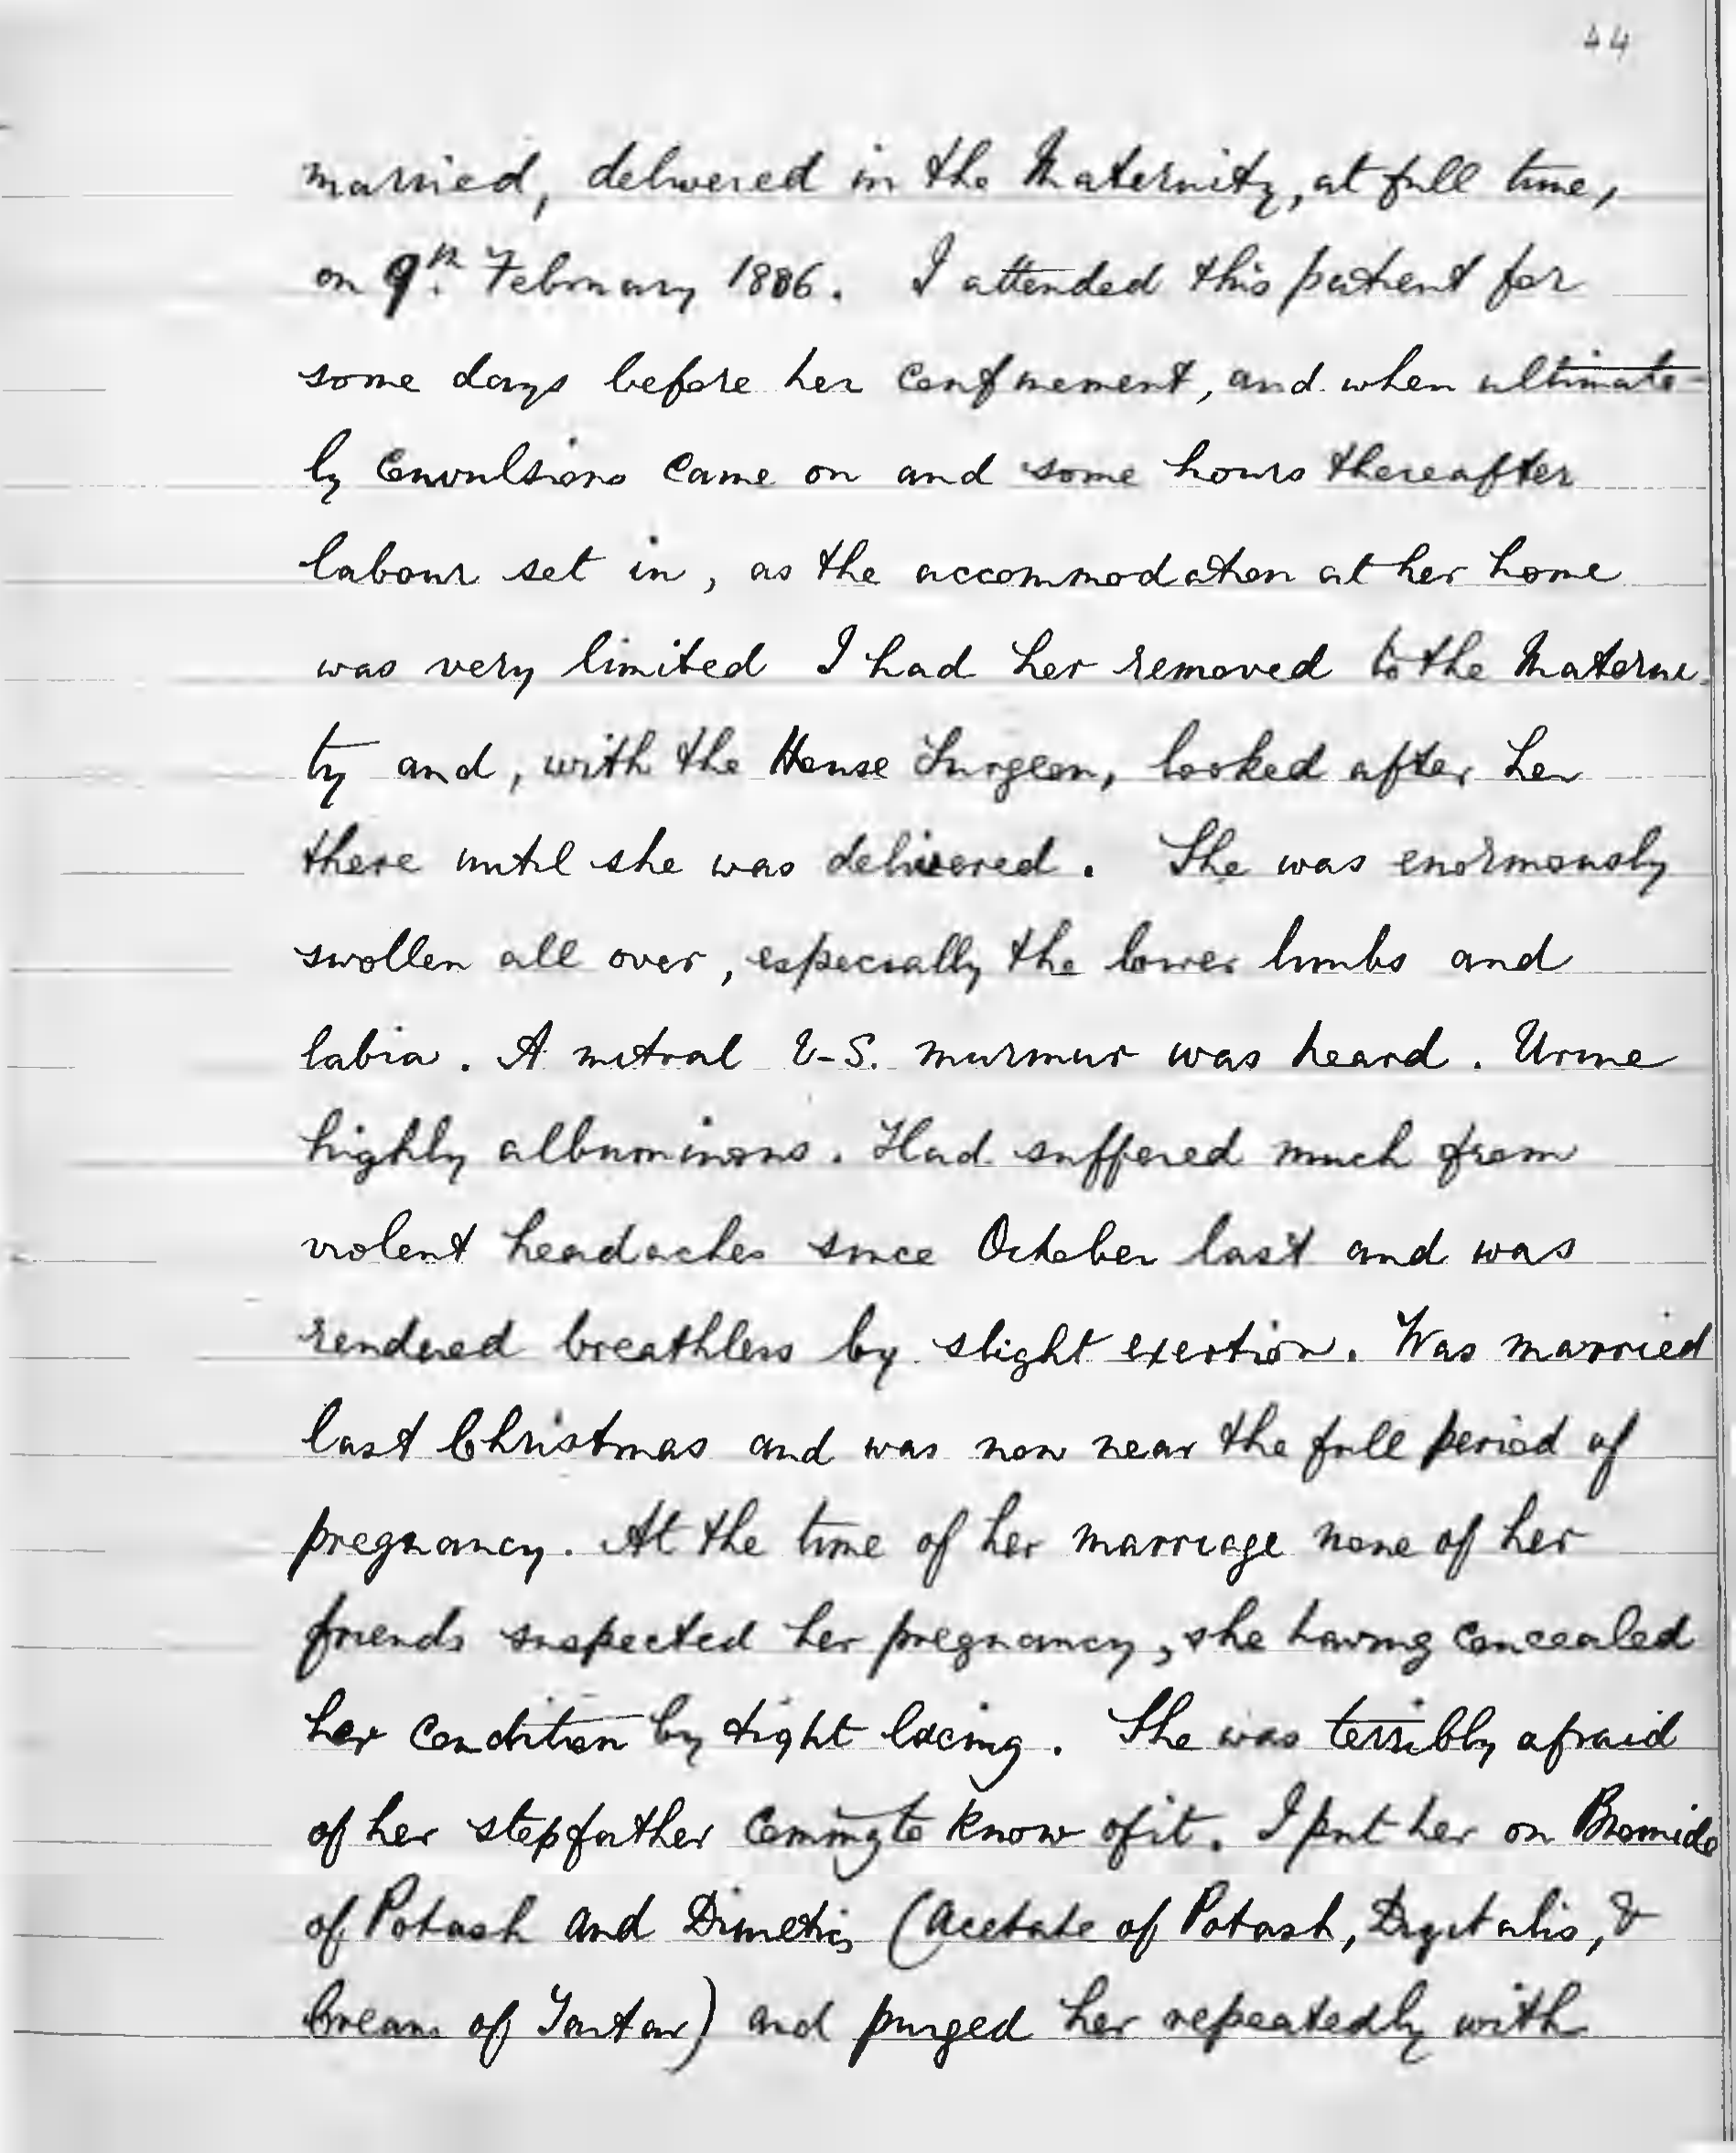 44
married, delivered in the Maternity, at full time,
on 9th. February 1886. I attended this patient for
some days before her confinement, and when ultimate-
ly Convulsions came on and some hours thereafter
labour set in, as the accommodation at her home
was very limited I had her removed to the Materni-
ty and, with the House Surgeon, looked after her
there until she was delivered. She was enormously
swollen all over, especially the lower limbs and
labia. A mitral V-S. murmur was heard. Urine
highly albuminous. Had suffered much from
violent headaches since October last and was
rendered breathless by slight exertion. Was married
last Christmas and was now near the full period of
pregnancy. At the time of her marriage none of her
friends suspected her pregnancy, she having concealed
her condition by tight lacing. She was terribly afraid
of her stepfather coming to know of it. I put her on Bromide
of Potash and Diuretics (Acetate of Potash, Digitalis, &
Cream of Tartar) and purged her repeatedly with